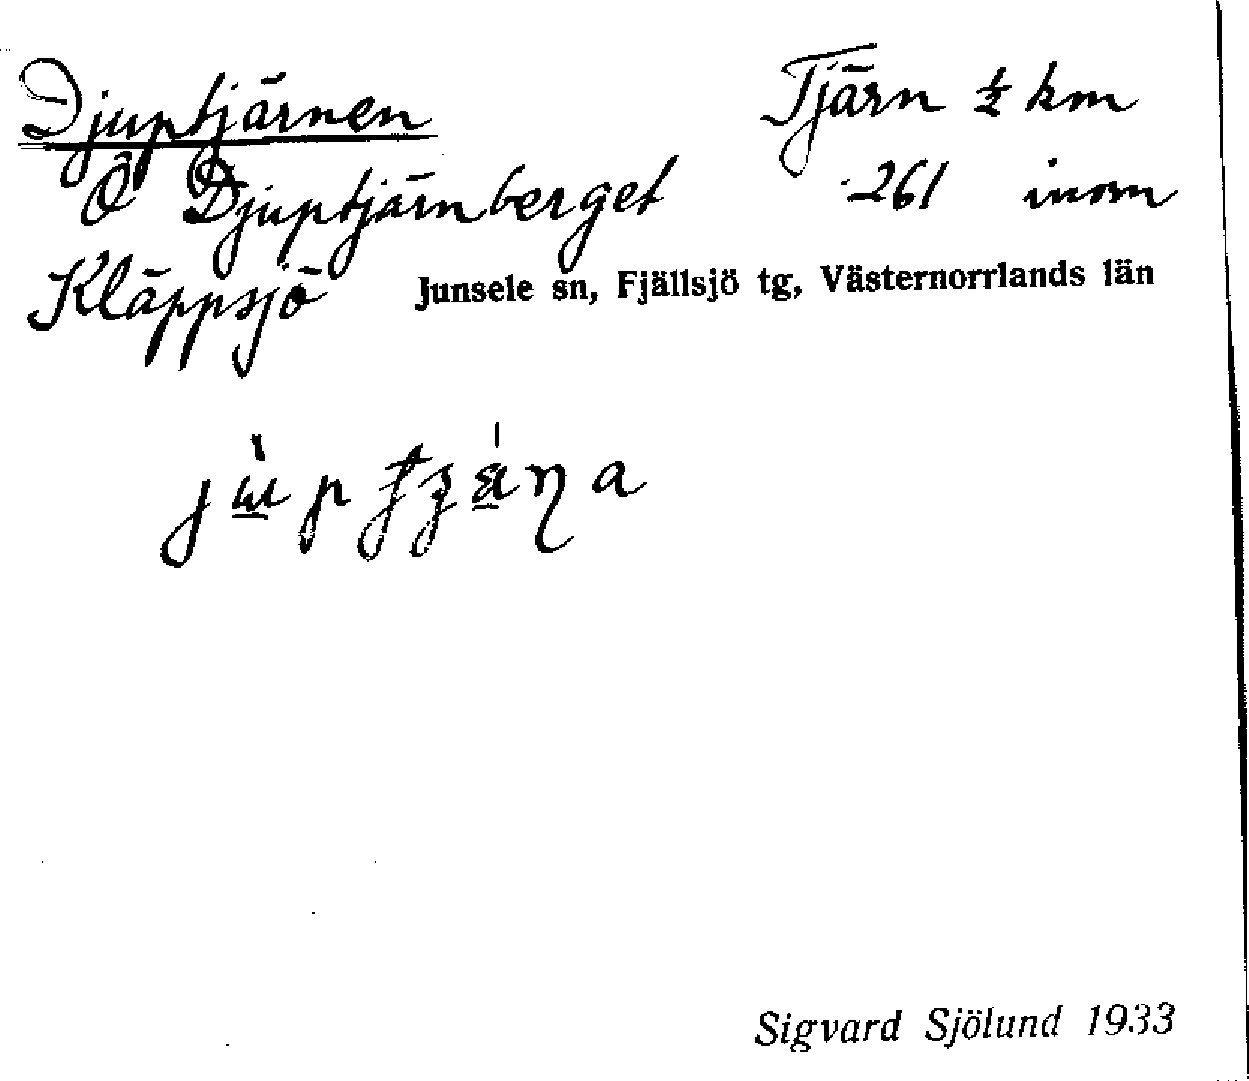 Djuptjärnen Tjärn ½ km
Ö Djuptjärnberget 261 inom
Kläppsjö Junsele sn, Fjällsjö tg, Västernorrlands län
Sigvard Sjölund 1933